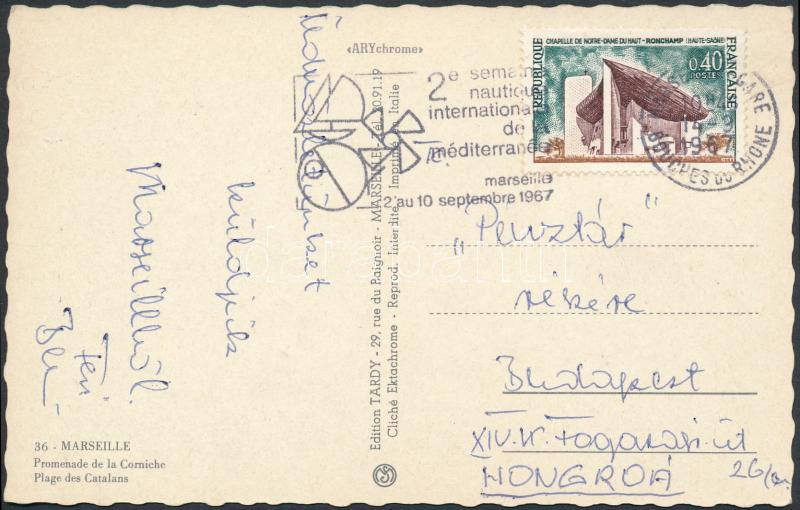 «ARYchrome»
RÉPUBLIQUE FRANÇAISE
CHAPELLE DE NOTRE-DAME DU HAUT - RONCHAMP (HAUTE-SAÔNE)
0,40
POSTES
2e semaine
nautique
internationale
de la
méditerranée
marseille
2 au 10 septembre 1967
GARE
1967
BOUCHES DU RHONE
Üdvözletünket
küldjük
Marseilleből.
Feri
„Pénztár”
részére
Budapest
XIV. k. Fogarasi út
HONGROÁ 26/
Edition TARDY - 29, rue du Baignoir - MARSEILLE - Tél. 20.91.19
Cliché Ektachrome - Reprod. Interdite - Imprimé en Italie
36 - MARSEILLE
Promenade de la Corniche
Plage des Catalans